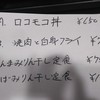 ロコモコ丼 ¥680
焼肉と白身フライ ¥7
んまみりん干し定食
ばみりん干し定食 ¥